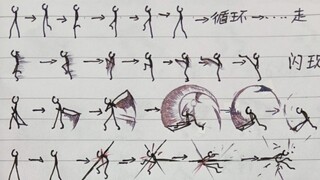 循环 走
闪现